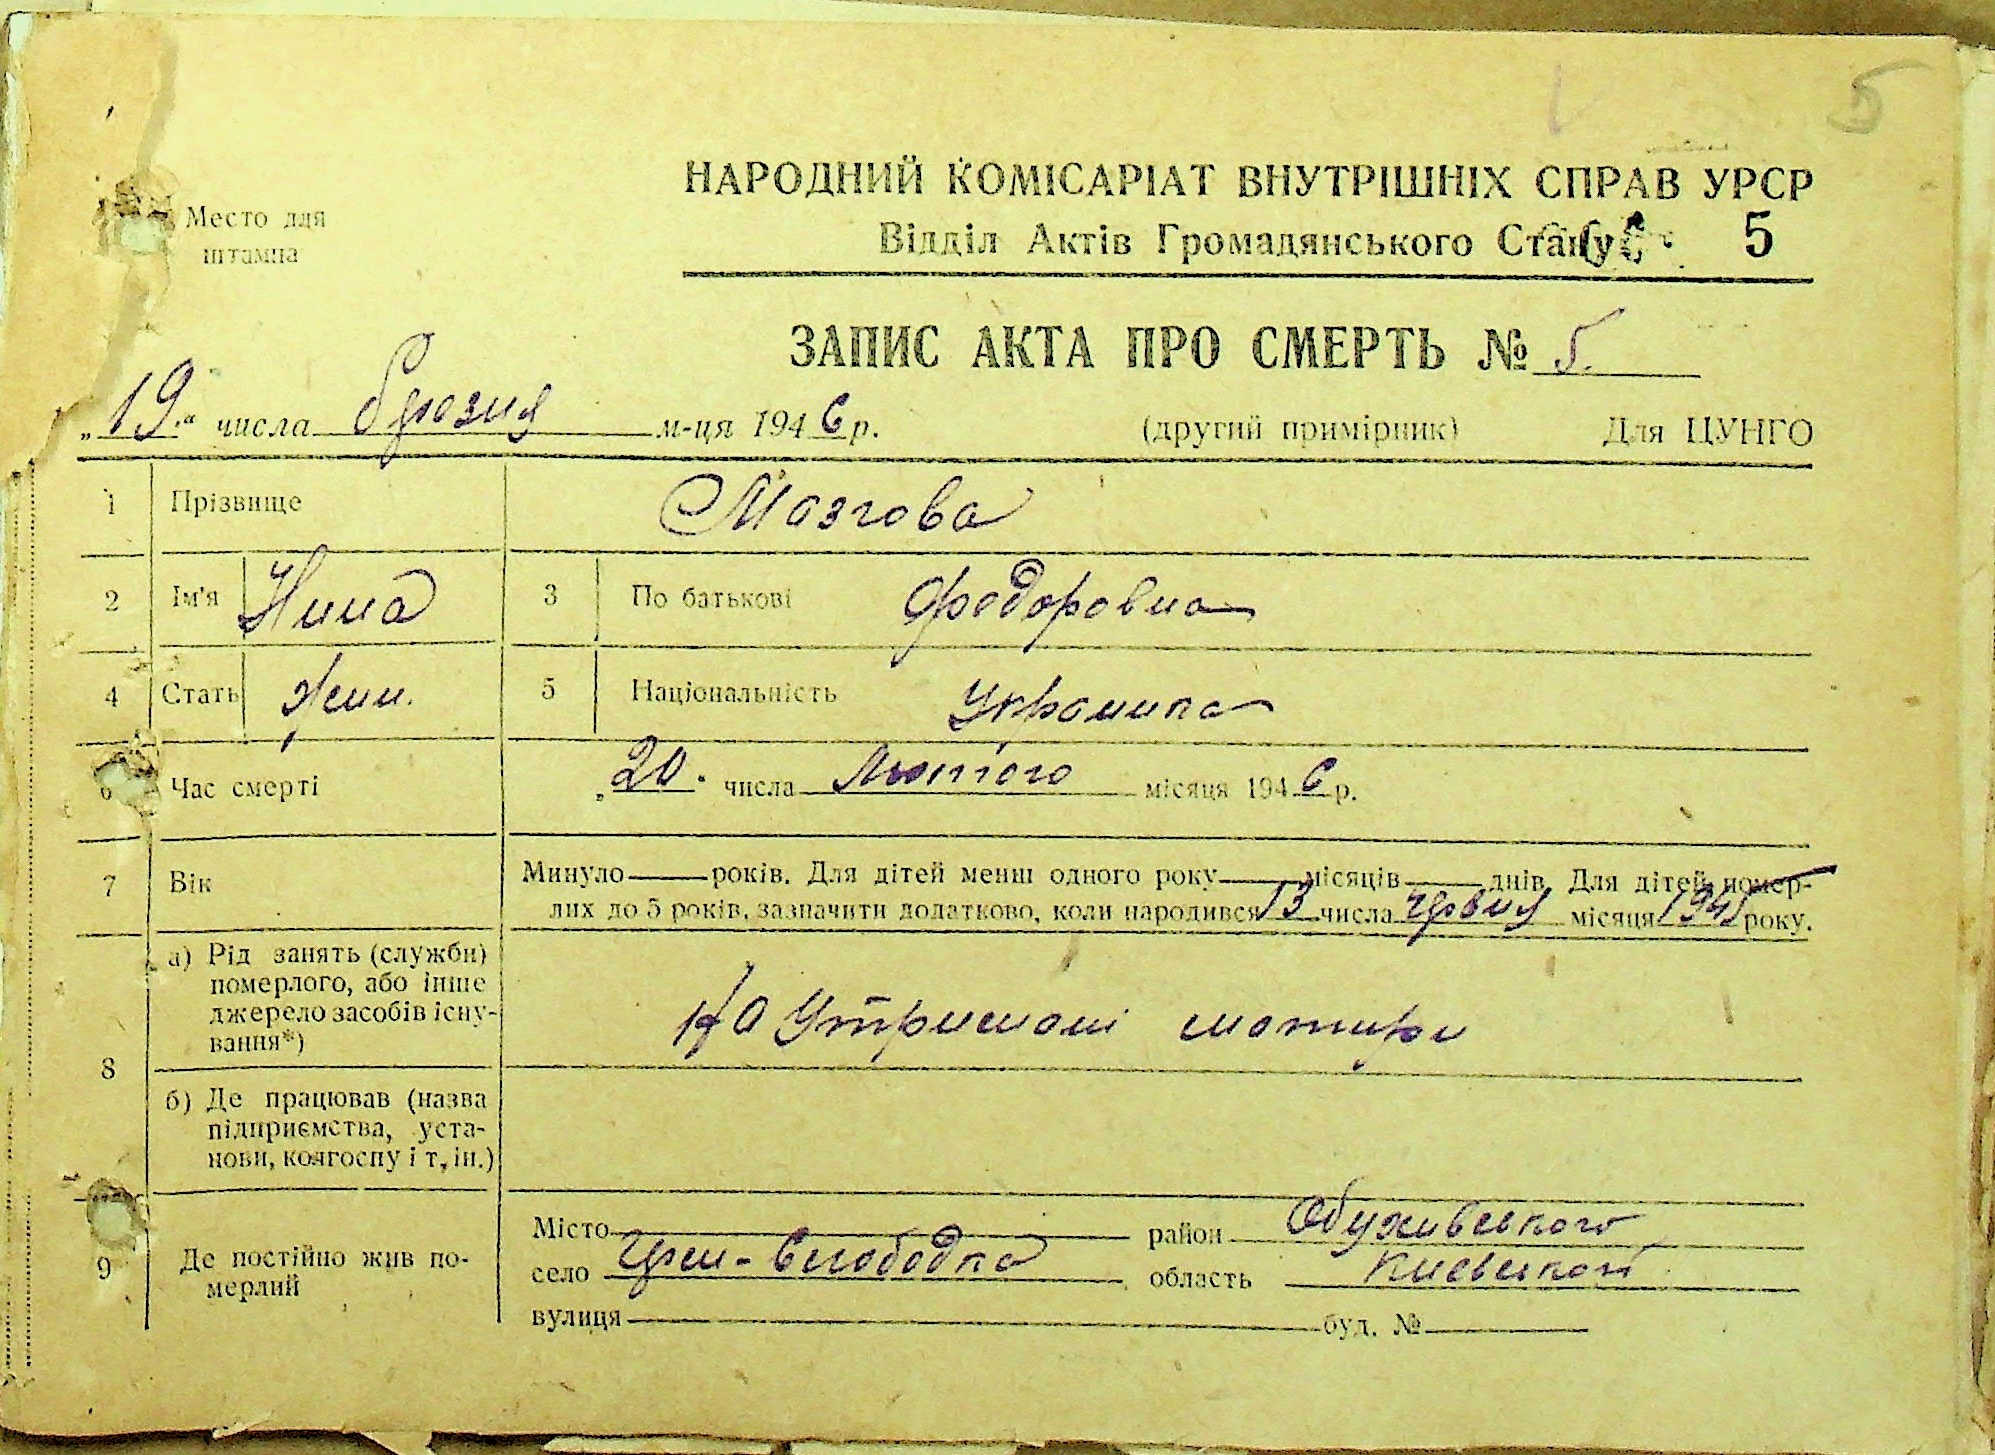 5
НАРОДНИЙ КОМІСАРІАТ ВНУТРІШНІХ СПРАВ УРСР
Место для
штампа
Відділ Актів Громадянського Стану 5
ЗАПИС АКТА ПРО СМЕРТЬ № 5.
„19.“ числа березня м-ця 1946 р. (другий примірник) Для ЦУНГО
1 Прізвище Мазгова
2 Ім'я Нина 3 По батькові Федоровна
4 Стать жин. 5 Національність Українка
6 Час смерті „20. числа Лютого місяця 1946 р.
7 Вік Минуло — років. Для дітей менш одного року — місяців — днів Для дітей помер-
лих до 5 років, зазначити додатково, коли народився 13 числа червня місяця 1945 року.
8 а) Рід занять (служби)
померлого, або інше
джерело засобів існу-
вання*)
На Утримані матири
б) Де працював (назва
підприємства, уста-
нови, колгоспу і т. ін.)
9 Де постійно жив по-
мерлий
Місто район Обухивського
село -Слободка область Києвской
вулиця буд. №